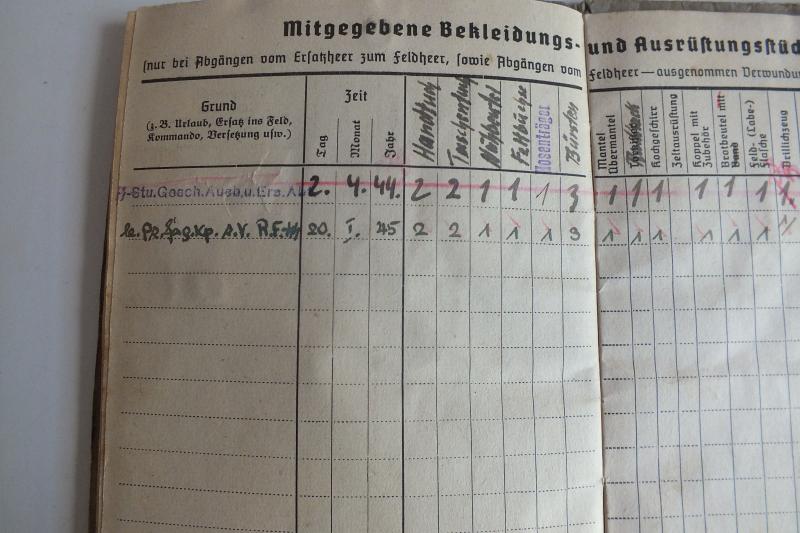 Mitgegebene Bekleidungs- und Ausrüstungsstüc
(nur bei Abgängen vom Ersatzheer zum Feldheer, sowie Abgängen vom Feldheer — ausgenommen Verwundu
Grund
(z. B. Urlaub, Ersatz ins Feld,
Kommando, Versetzung usw.)
Zeit
Tag
Monat
Jahr
Handtuch
Nähbeutel
Fettbüchse
Hosenträger
Bürsten
Mantel
Übermantel
Kochgeschirr
Zeltausrüstung
Koppel mit
Zubehör
Brotbeutel mit
Band
Feld- (Labe-)
flasche
Drillichzeug
-Stu.Gesch.Ausb.u.Ers.A 2. 4. 44. 2 2 1 1 1 3 1 1 1 1 1 1 1.
20. I. 45 2 2 1 1 1 3 1 1 1 1 1 1 1